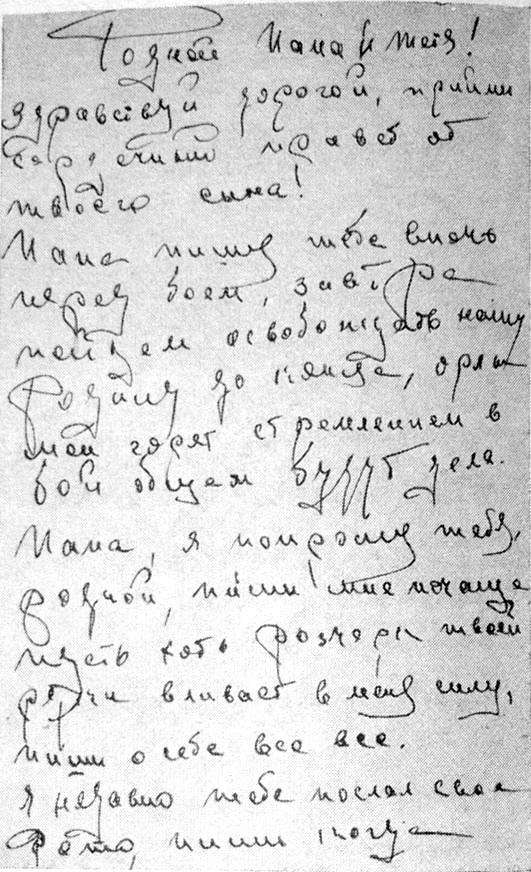 Родной Папа и Тетя!
здравствуй дорогой, прийми
сердечный привет от
твоего сына!
Папа пишу тебе вночь
перед боем, завтра
пойдем освобождать нашу
Родину до конца, орлы
мои горят стремлением в
бой общем будут дела.
Папа, я попрошу тебя,
родной, пиши мне почаще
пусть хоть розчерк твоей
руки вливает в меня силу,
пиши о себе все все.
Я недавно тебе послал свое
Фото, пиши когда